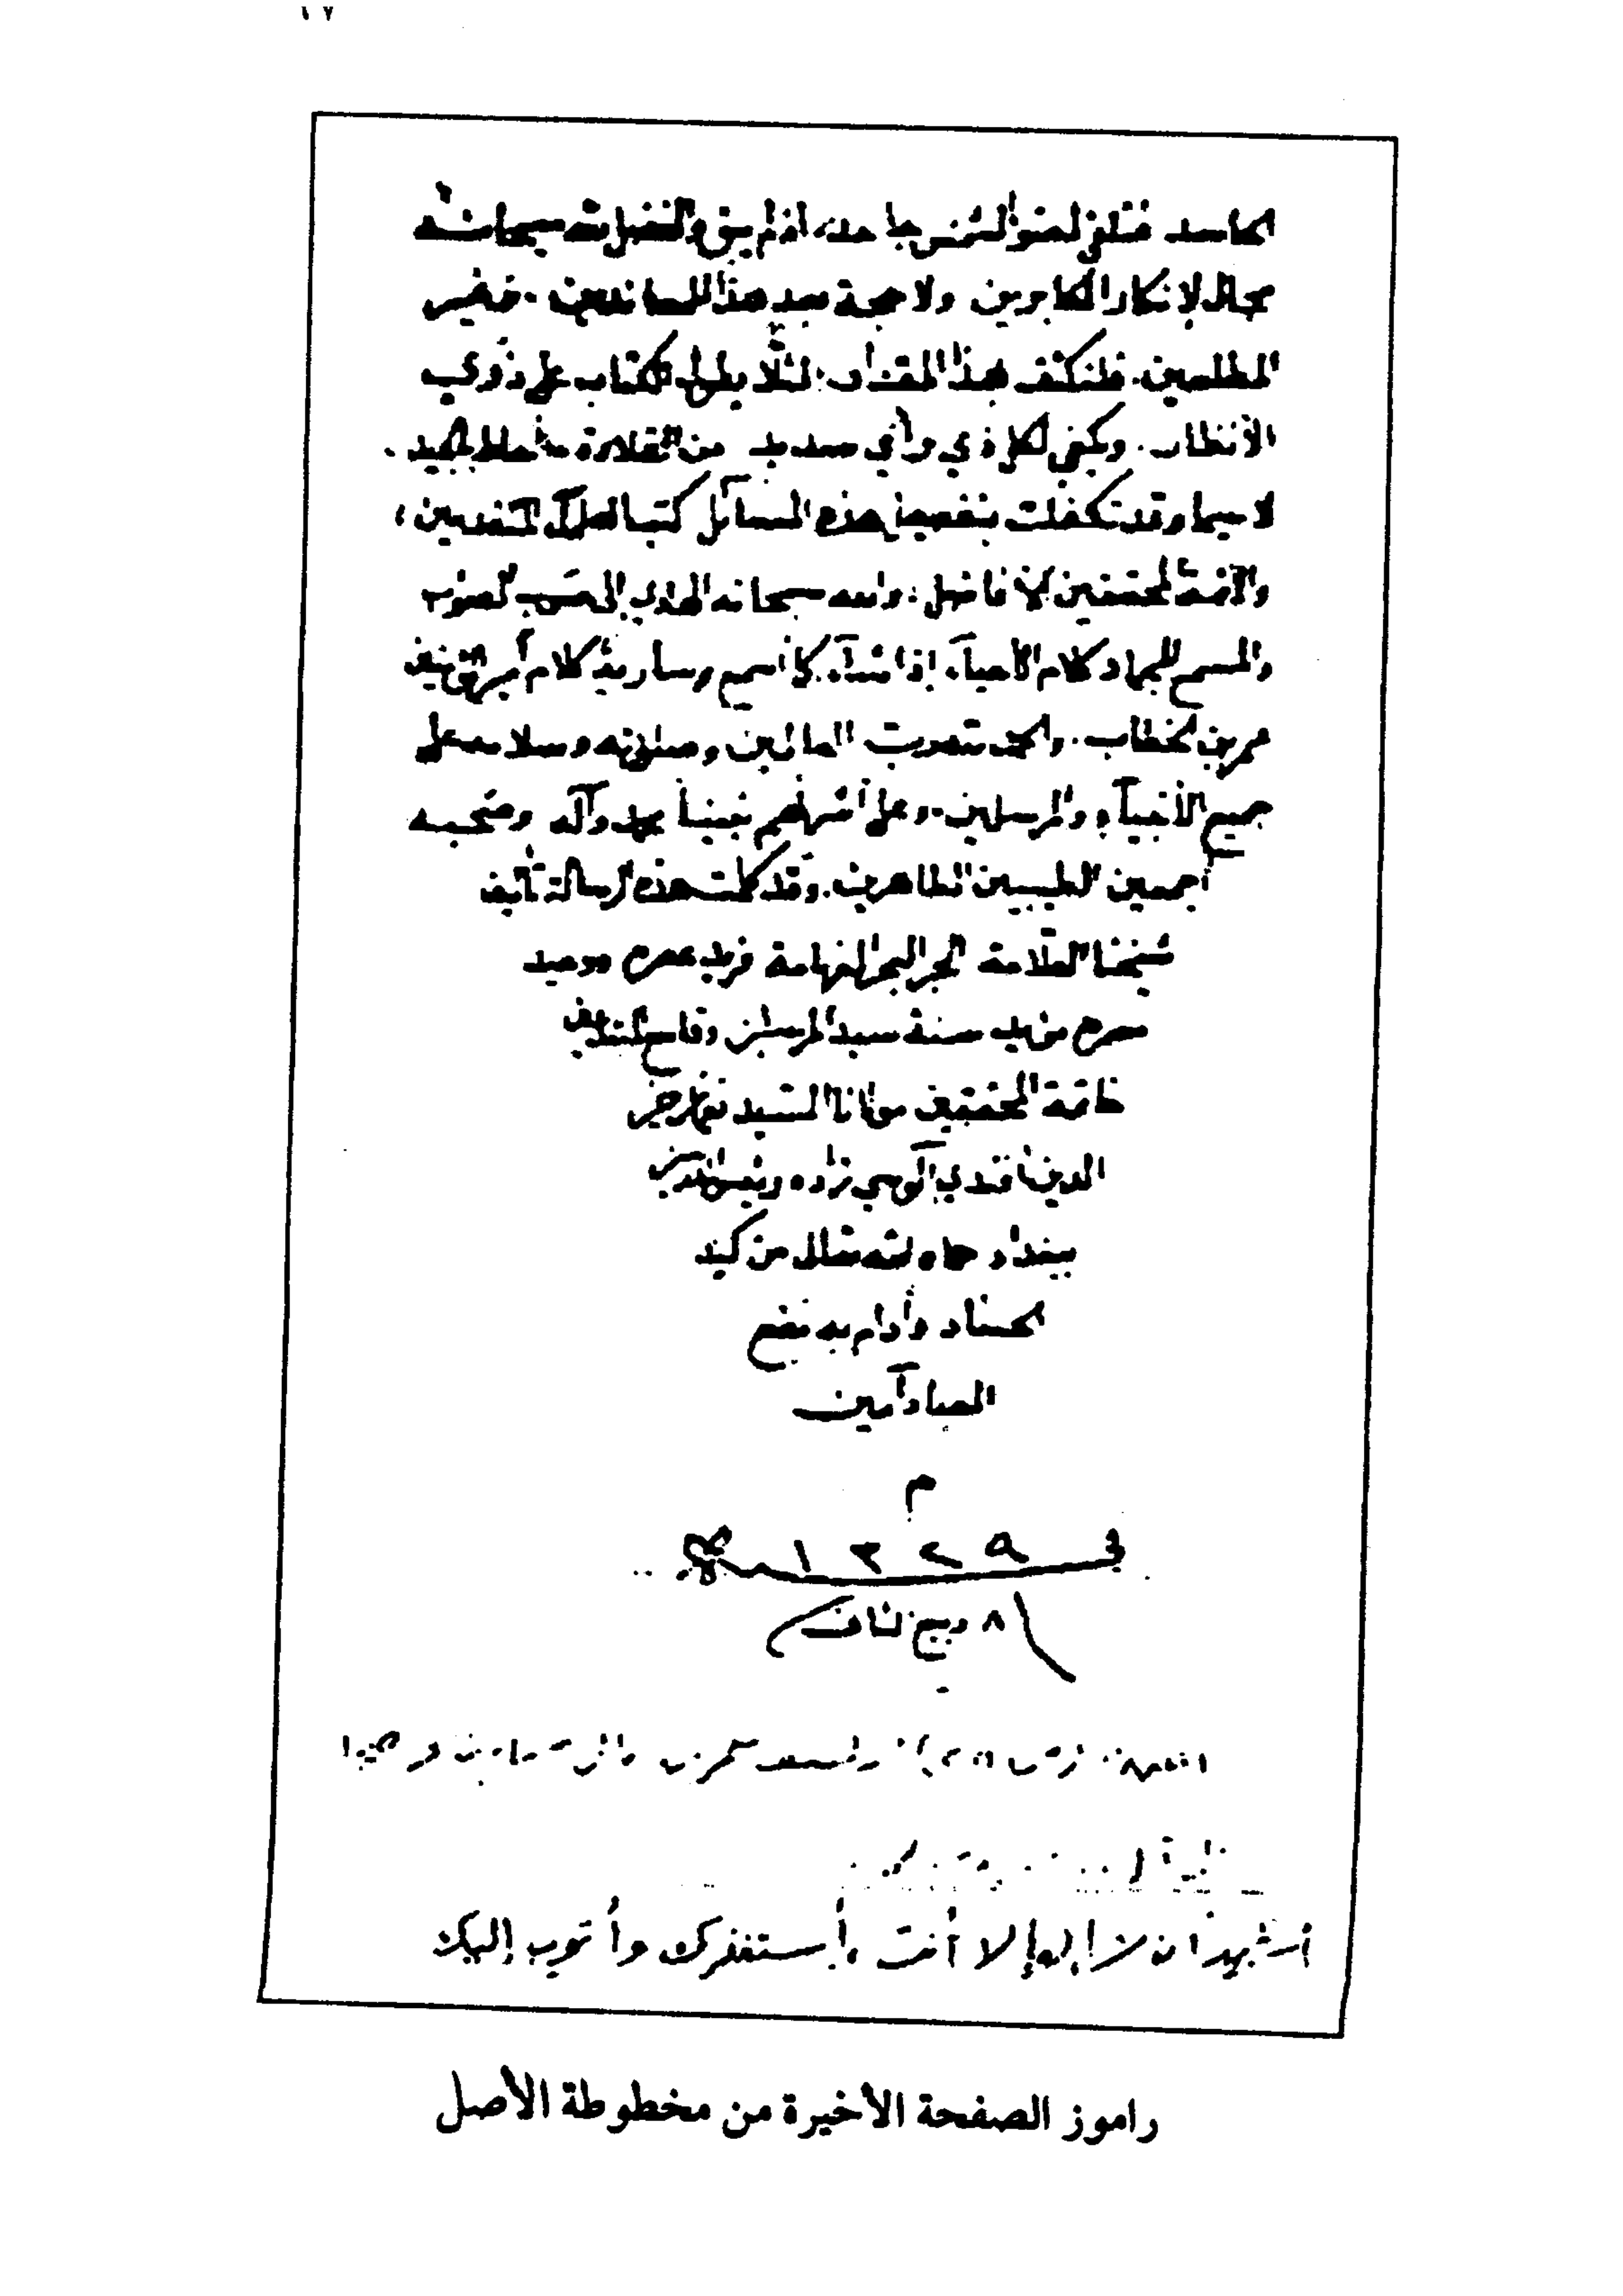 ١٧
الحاسد فتلفى لضوء الشمس جاحداً، إذ لم يبق والفضل لله سبحانه
مجال لإنكار المكابرين ولا حجة بيد هذا للمعاندين. فغير
المطلعين. فلنكتف بهذا المقدار، لئلا يطول الكتاب على ذوي
الأنظار. ويكفي لكل ذي رأي سديد من القلادة ما أحاط بالجيد.
لا سيما وقد تكفلت بتفصيل هذه المسائل كتب العلماء المتقدمين،
والأئمة المحققين الأفاضل، والله سبحانه الهادي إلى الصوب
والمسمع للجماد كلام الأحياء، إذا شاء، كما أسمع وسارية كلام أمير المؤمنين
عمر بن الخطاب. والحمد لله رب العالمين وصلاته وسلامه على
جميع الأنبياء والمرسلين. وعلى أشرفهم نبينا محمد وآله وصحبه
أجمعين الطيبين الطاهرين. وقد كملت هذه الرسالة تأليف
شيخنا العلامة الحبر البحر الفهامة فريد عصره ووحيد
مصره مؤيد سنة سيد المرسلين وقامع المبتدعين
خاتمة المحققين مولانا السيد نعمان خير
الدين افندي آلوسي زاده رئيس المدرسين
ببغداد حماه الله تعالى من كيد
الحساد وأدام به نفع
العباد آمين
م
في ١٣٢٩
٨ ربيع الثاني
أشهد ان لا إله إلا أنت، أستغفرك وأتوب إليك
راموز الصفحة الأخيرة من مخطوطة الأصل